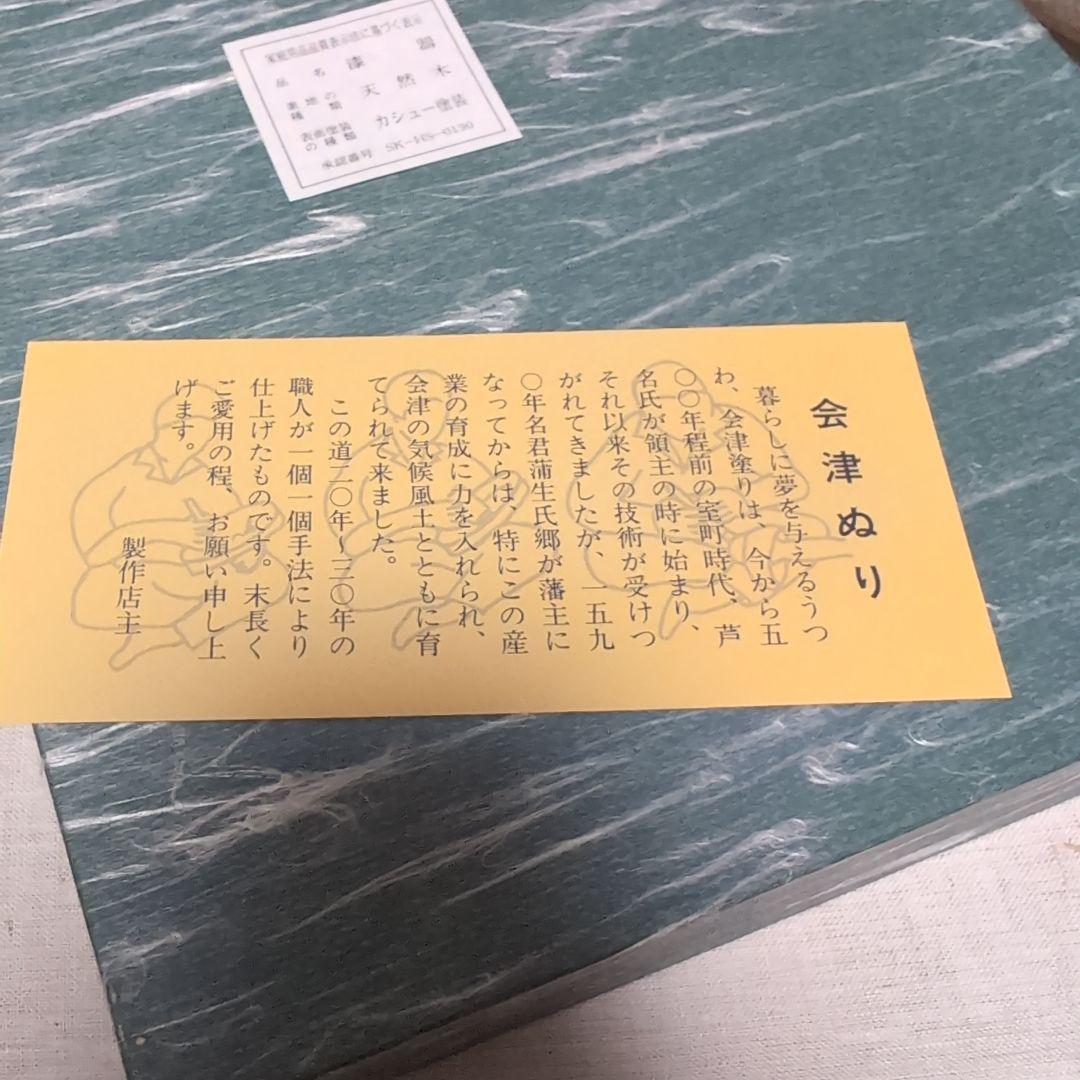 家庭用品品質表示法に基づく表示
品名 漆器
素地の種類 天然木
表面塗装の種類 カシュー塗装
承認番号 SK-HS-0190
会津ぬり
暮らしに夢を与えるうつ
わ、会津塗りは、今から五
〇〇年程前の室町時代、芦
名氏が領主の時に始まり、
それ以来その技術が受けつ
がれてきましたが、一五九
〇年名君蒲生氏郷が藩主に
なってからは、特にこの産
業の育成に力を入れられ、
会津の気候風土とともに育
てられて来ました。
この道二〇年〜三〇年の
職人が一個一個手法により
仕上げたものです。末長く
ご愛用の程、お願い申し上
げます。
製作店主